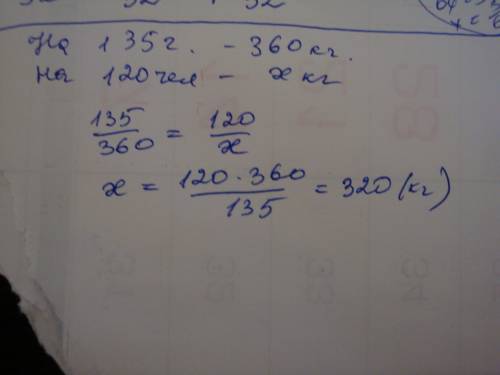 На 135ч. - 360кг.
На 120чел - x кг
135/360 = 120/x
x = 120·360/135 = 320 (кг)